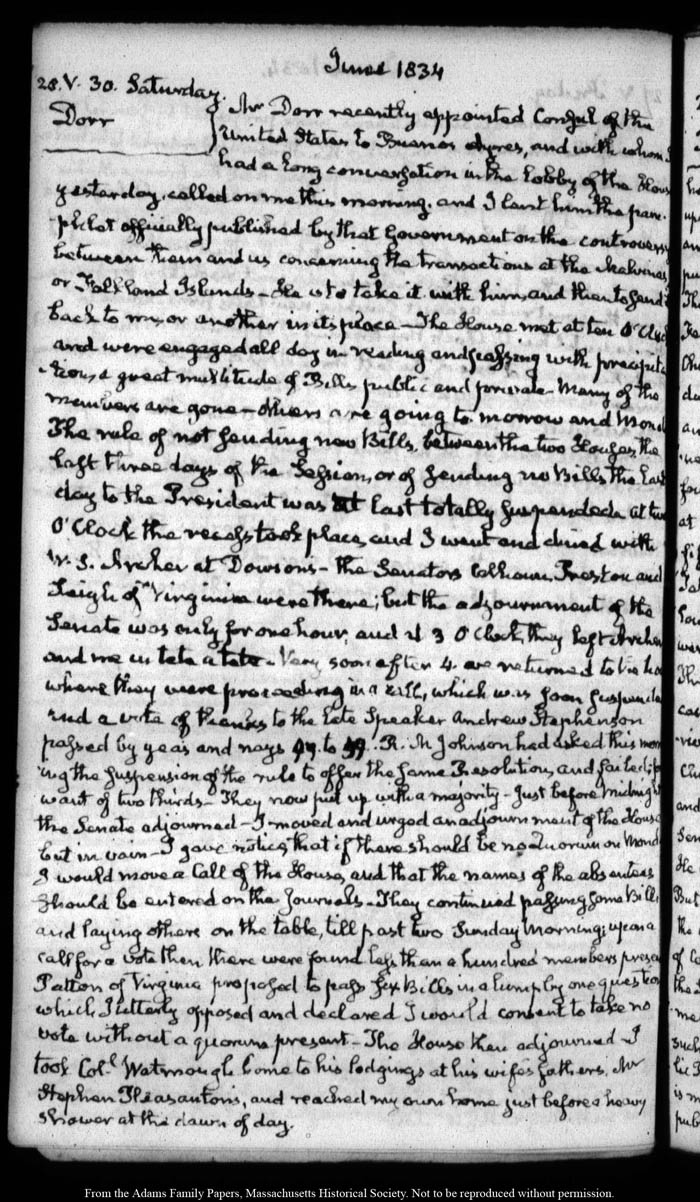 June 1834
28. V. 30. Saturday.
Dorr
Mr Dorr recently appointed Consul of the
United States to Buenos Ayres, and with whom I
had a long conversation in the Lobby of the Hous
yesterday, called on me this morning, and I lent him the pam-
phlet officially published by that Government on the controversy
between them and us concerning the transactions at the Malvinas
or Falkland Islands – He is to take it with him, and then to send it
back to me, or another in its place – The House met at ten O'Cloc
and were engaged all day in reading and passing with precipita-
tion, a great multitude of Bills public and private – Many of the
members are gone – others are going to morrow and Mond
The rule of not sending new Bills, between the two Houses, the
last three days of the Session, or of sending no Bills the last
day to the President was at last totally suspended. at two
O'Clock the recess took place, and I went and dined with
W. S. Archer at Dowson's – the Senators Calhoun, Preston and
Leigh of Virginia were there; but the adjournment of the
Senate was only for one hour, and at 3 O'Clock, they left Archer
and me in tete a tete – Very soon after 4. we returned to the ho
where they were proceeding in a call, which was soon suspende
and a vote of thanks to the late Speaker Andrew Stephenson
passed by yeas and nays 97. to 49. R. M Johnson had asked this mor
ing the suspension of the rule to offer the same Resolution, and failed for
want of two thirds – They now put up with a majority – Just before midnigh
the Senate adjourned – I moved and urged an adjournment of the House
but in vain – I gave notice, that if there should be no Quorum on Mond
I would move a Call of the House, and that the names of the absentees
should be entered on the Journals – They continued passing some Bills
and laying others on the table, till past two Sunday Morning; upon a
call for a vote then there were found less than a hundred members presen
Patton of Virginia proposed to pass six Bills in a lump by one question
which I utterly opposed and declared I would consent to take no
vote without a quorum present – The House then adjourned – I
took Coll. Watmough home to his lodgings at his wife's fathers, Mr
Stephen Pleasanton's, and reached my own home just before a heavy
shower at the dawn of day.
From the Adams Family Papers, Massachusetts Historical Society. Not to be reproduced without permission.